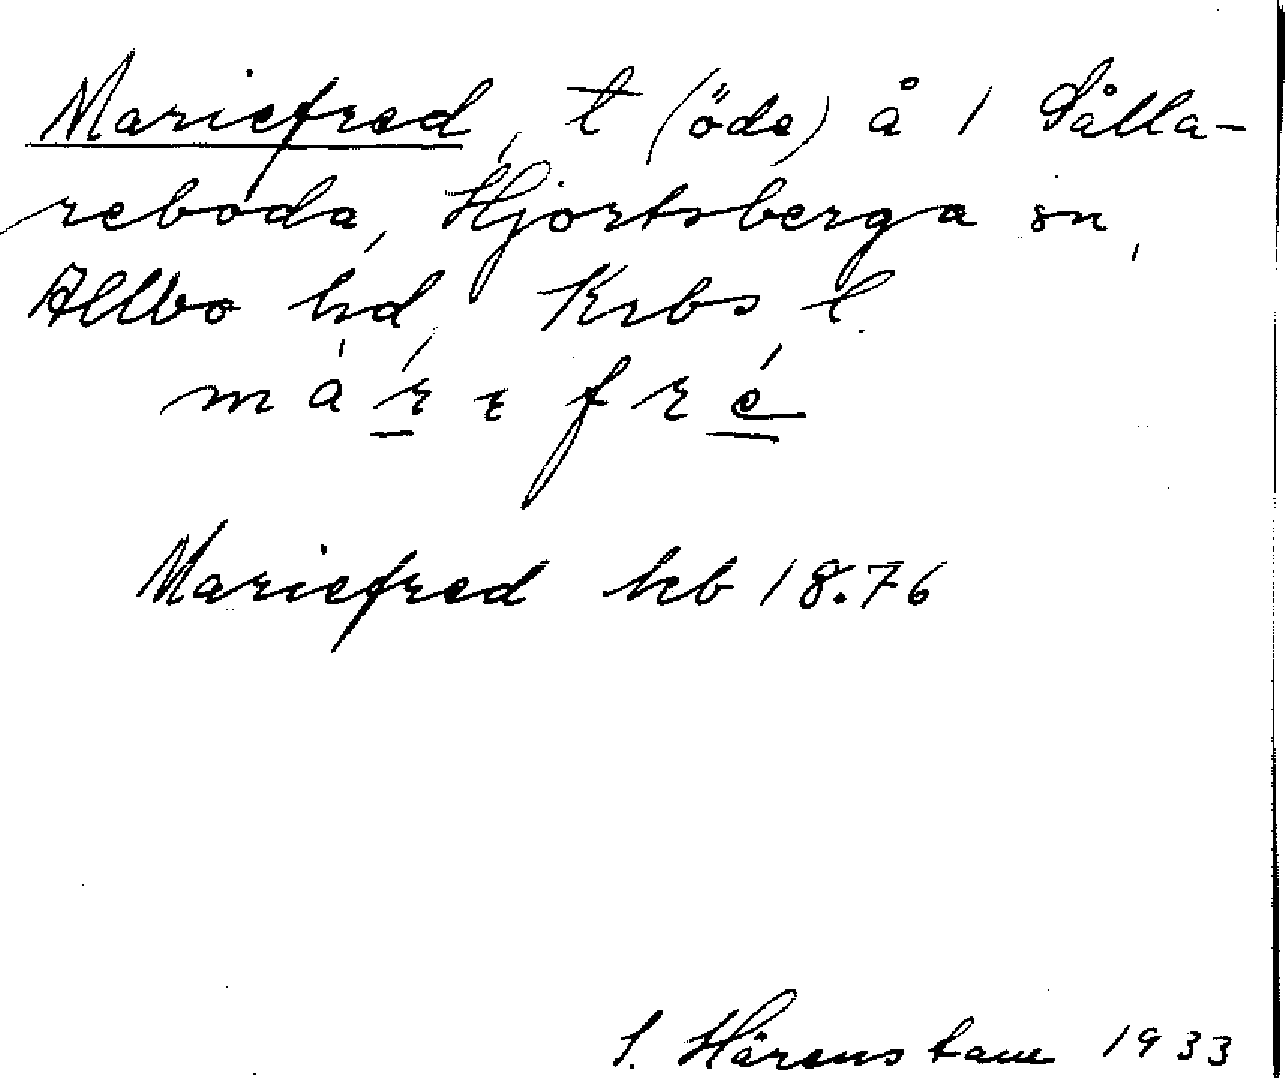 Mariefred, t (öde) å 1 Sålla-
reboda, Hjortsberga sn,
Allbo hd, Krbs l.
márɛfré
Mariefred hb 18.76
S. Härenstam 1933